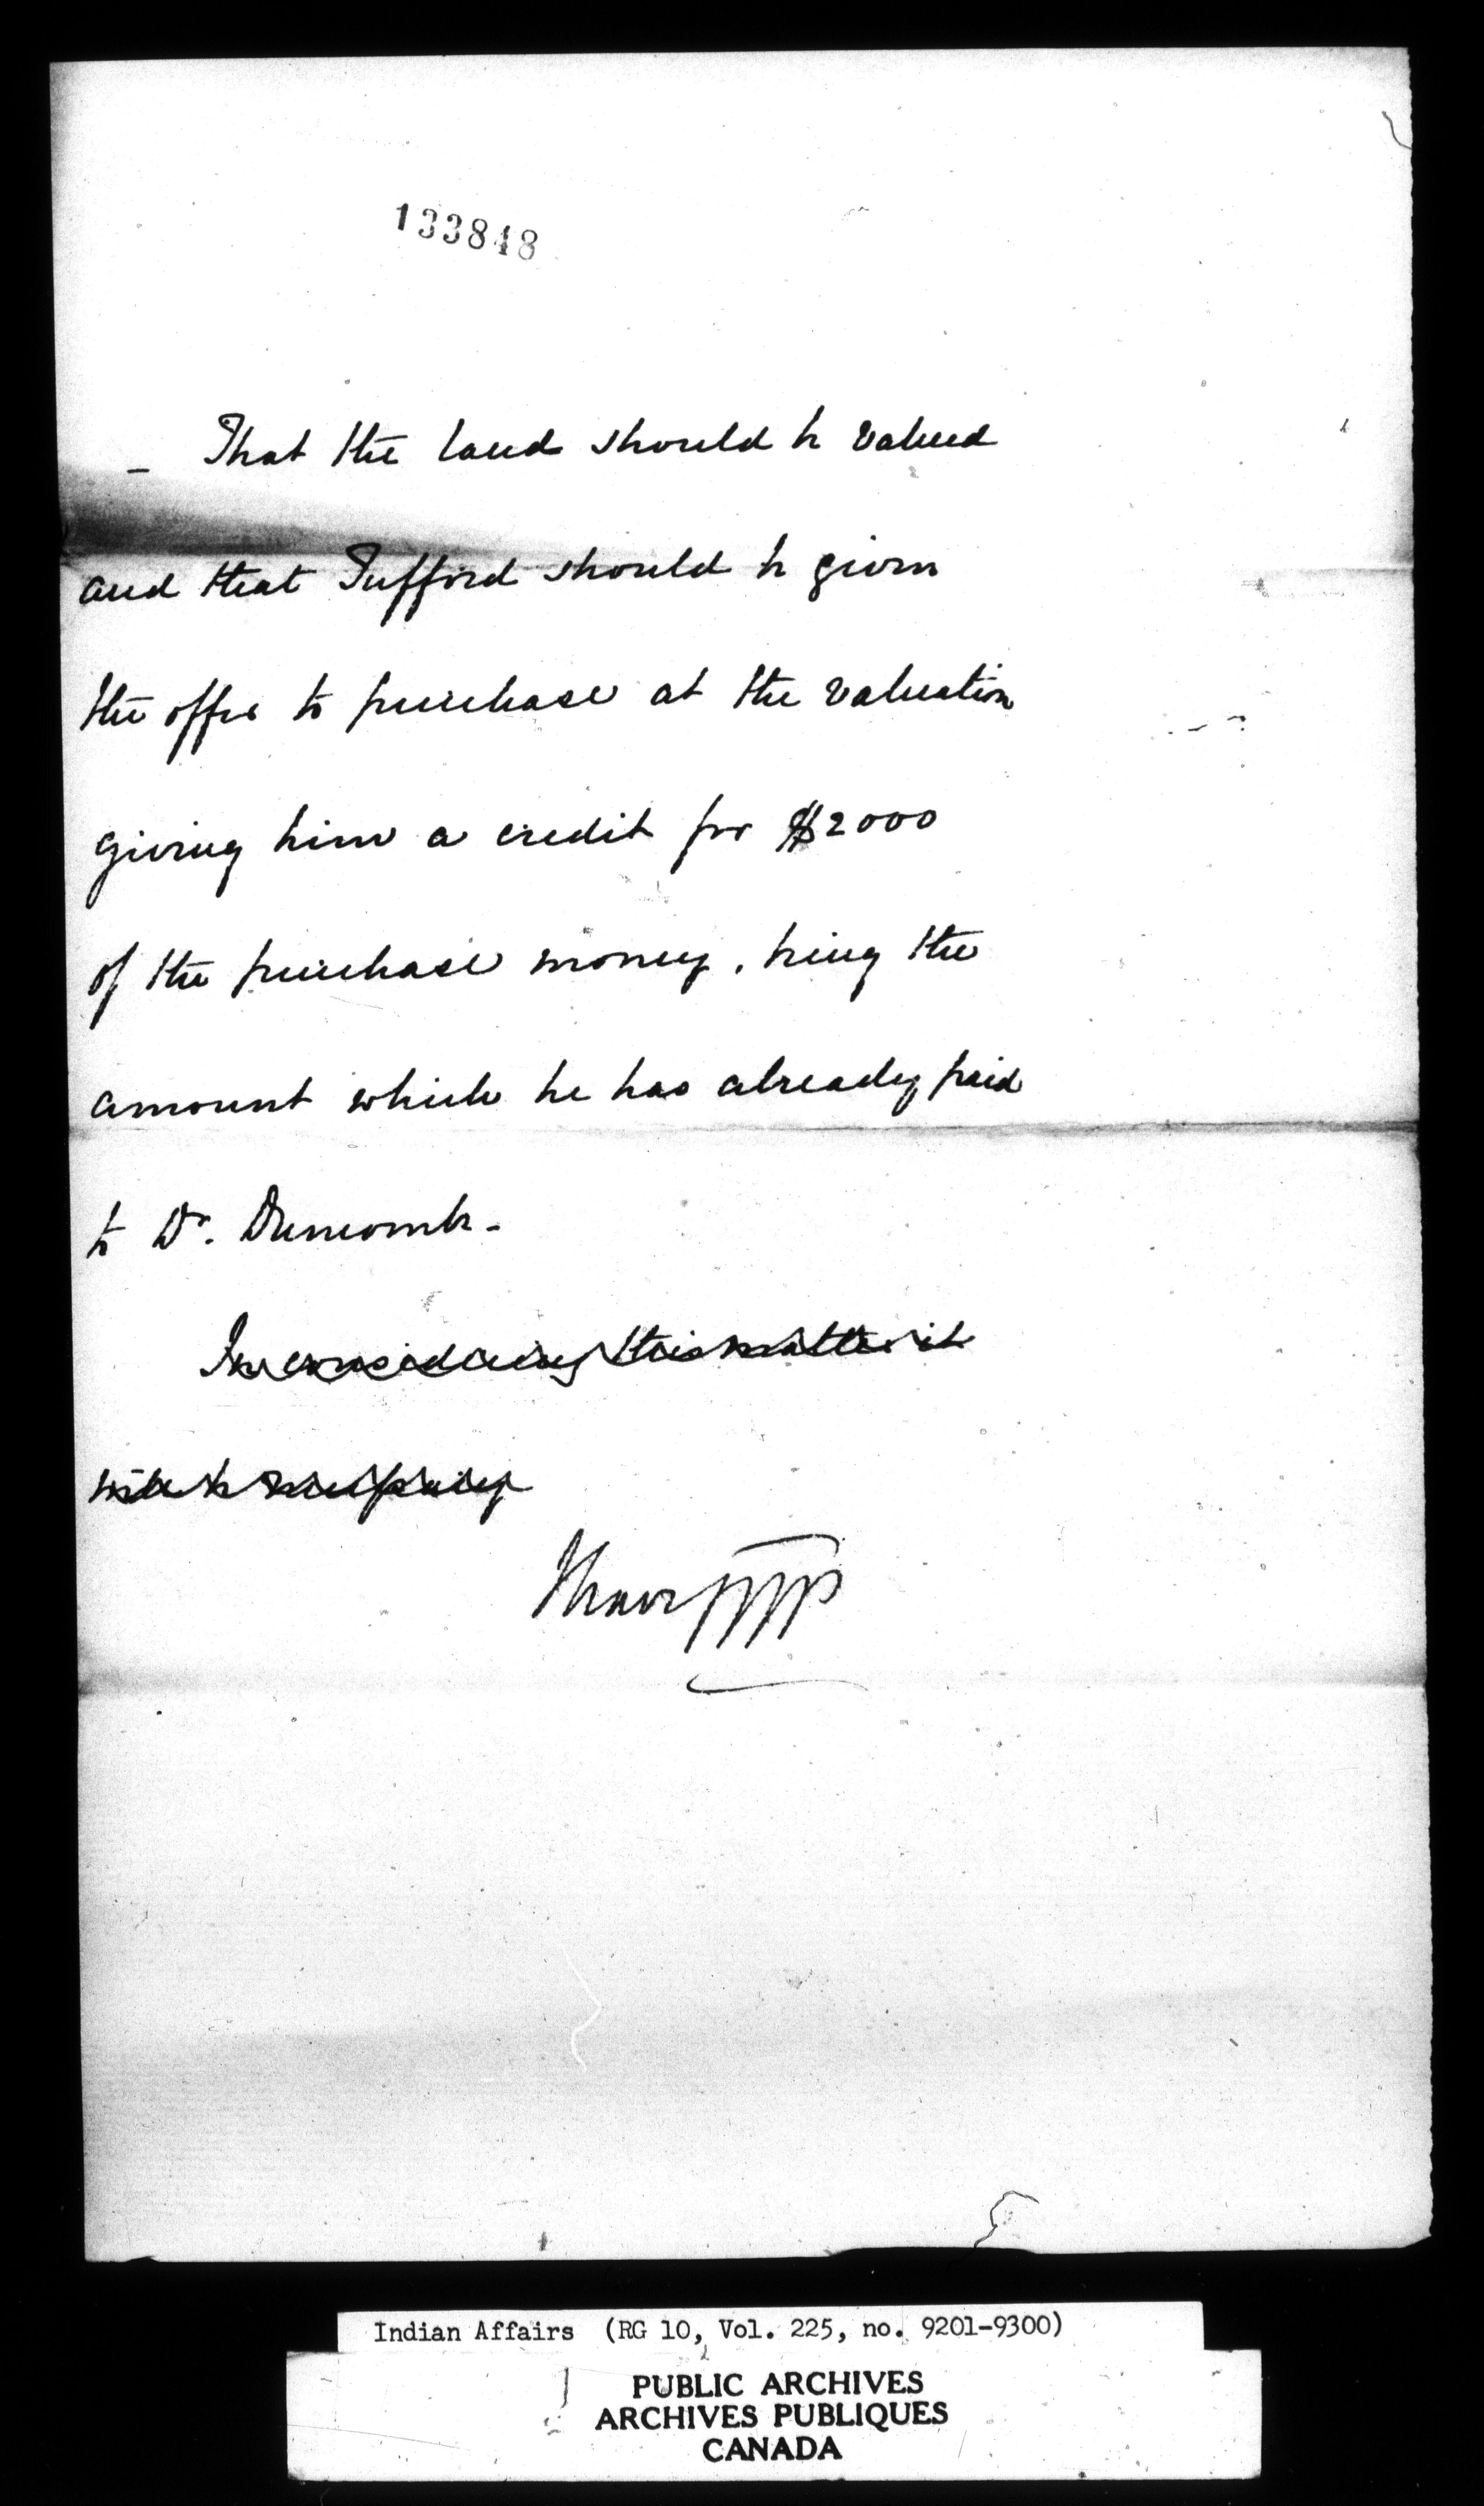 133848
- That the land should be valued
and that Tufford should be given
the offer to purchase at the valuation
giving him a credit for $2000
of the purchase money, being the
amount which he has already paid
to Dr. Duncomb -
In considering this matter it
will be necessary
Indian Affairs (RG 10, Vol. 225, no. 9201-9300)
PUBLIC ARCHIVES
ARCHIVES PUBLIQUES
CANADA